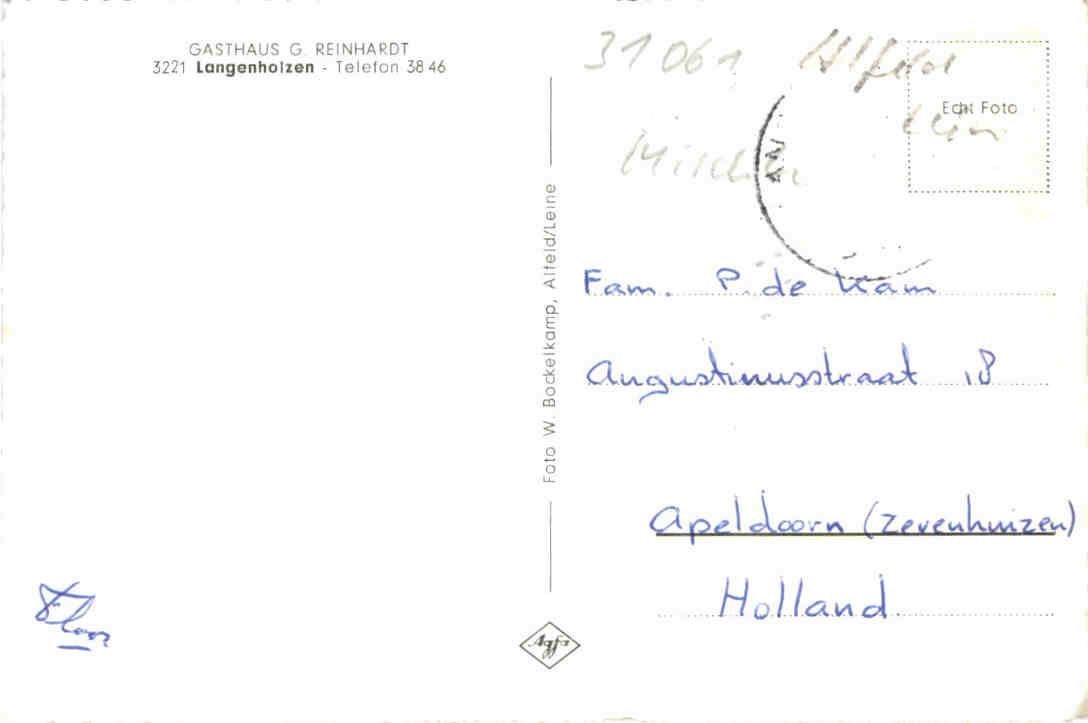 GASTHAUS G. REINHARDT
3221 Langenholzen - Telefon 38 46
31061 Alfeld
Echt Foto
Foto W. Bockelkamp, Alfeld/Leine
Fam. P. de Kam
Angustinusstraat 18
Apeldoorn (Zevenhuizen)
Holland
Floor
Agfa